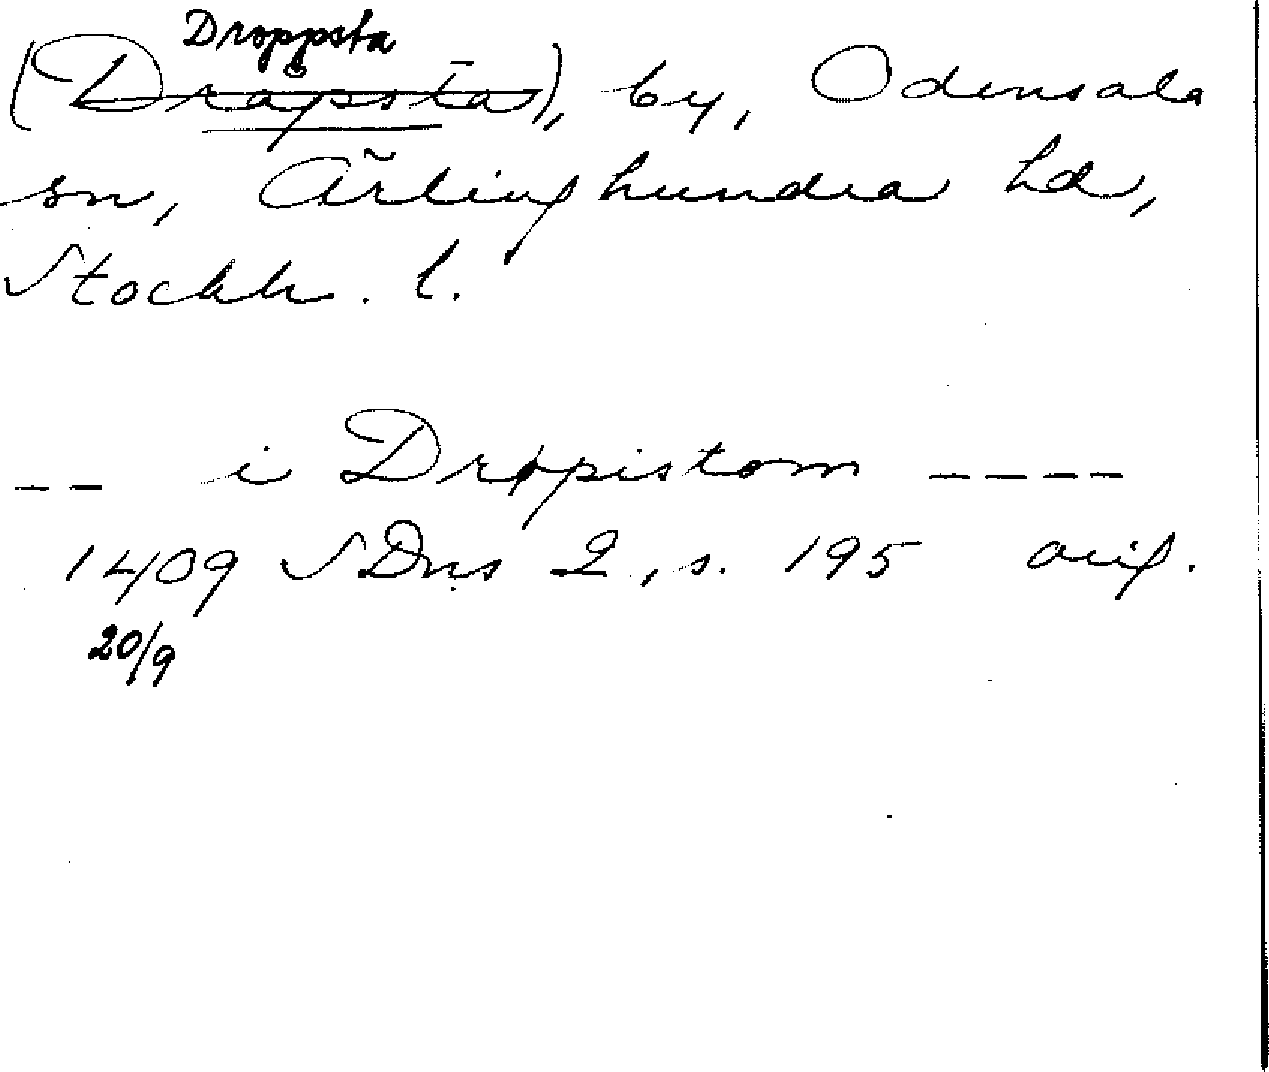 Droppsta
(Drapsta), by, Odensala
sn, Ärlinghundra hd,
Stockh. l.
-- i Dropistom ----
1409 SDns 2, s. 195 orig.
20/9